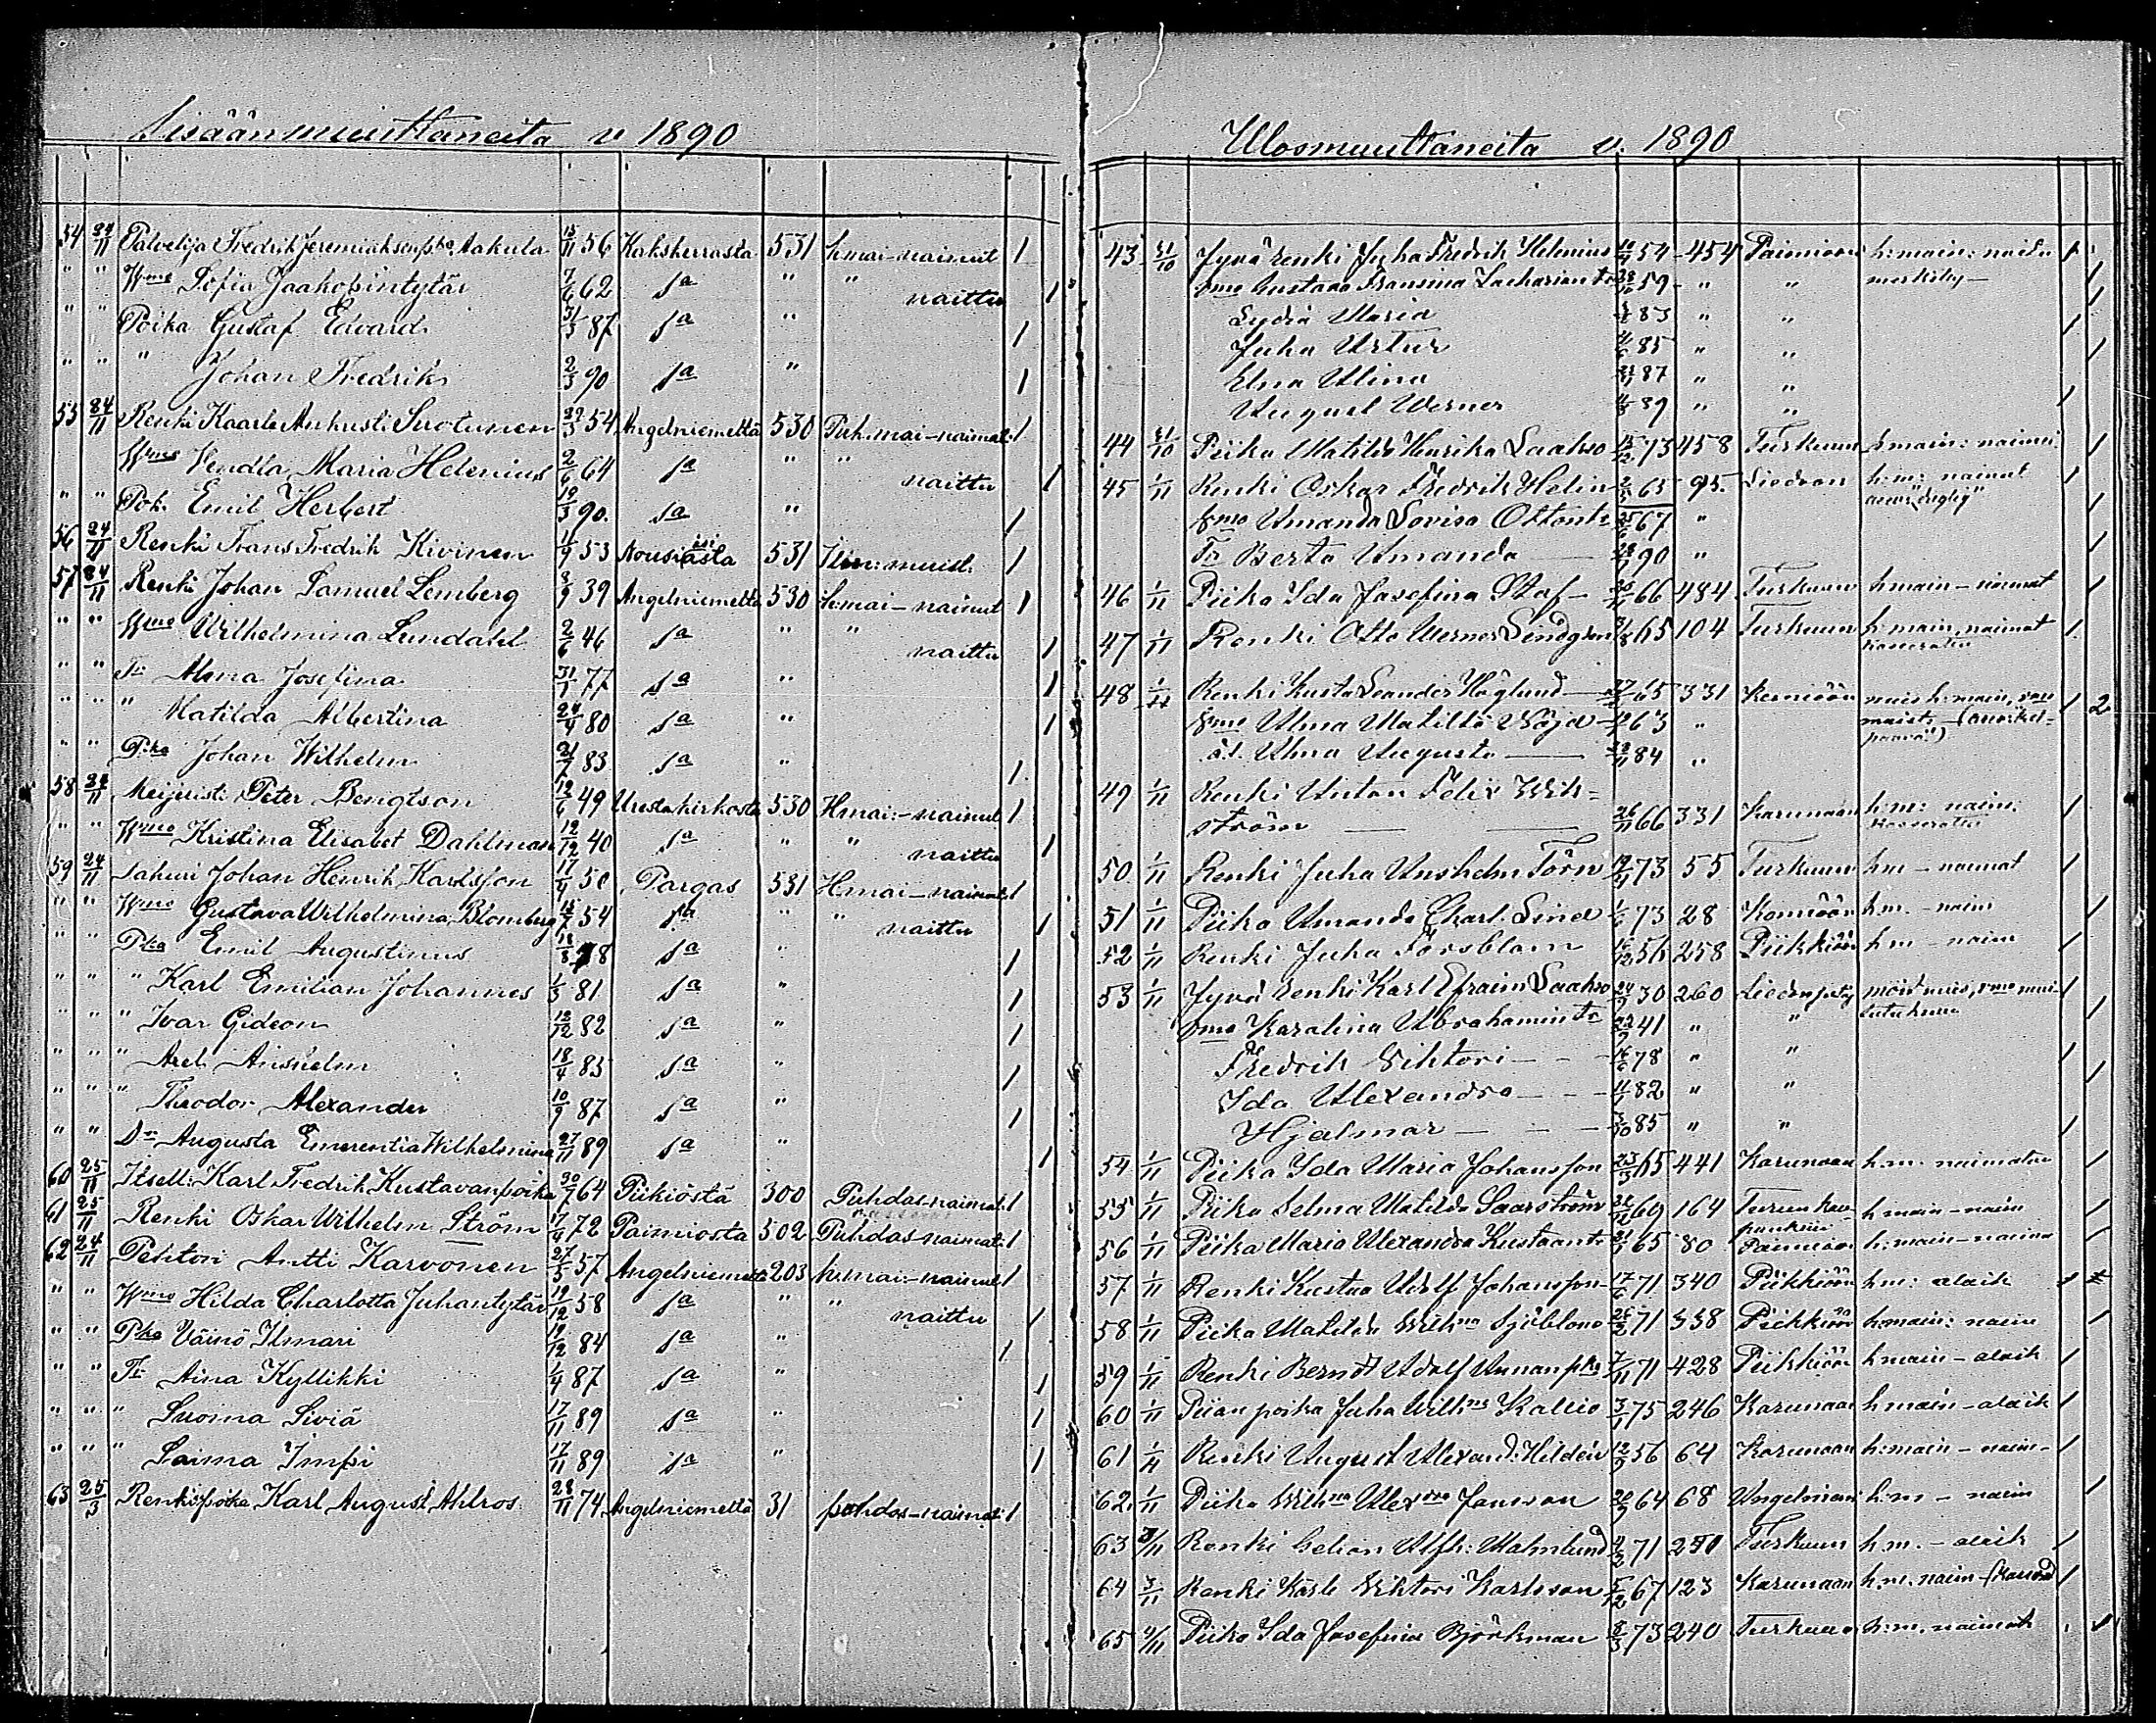 Sisäänmuuttaneita v 1890
54 24/11 Palvelija Fredrik Jeremiaksenpka Aakula 15/11 56 Kakskerrasta 531 h.mai-naimut 1
" " Wmo Sofia Jaakopintytär 7/6 62 Sa " " naittu 1
" " Poika Gustaf Edvard 31/3 87 Sa " 1
" " " Johan Fredrik 2/3 90 Sa " 1
55 24/11 Renki Kaarle Auhusti Suotunen 29/3 54 Angelniemeltä 530 Puh.mai-naimat 1
Wmo Vendla Maria Helenius 2/6 64 Sa " " naittu 1
" " Pok. Emil Herbert 19/3 90. Sa " 1
56 24/11 Renki Frans Fredrik Kivinen 11/9 53 Nousiaista 531 1
57 24/11 Renki Johan Samuel Lemberg 8/9 39 Angelniemeltä 530 h.mai-naimut 1
" " Wmo Wilhelmina Lundahl 2/6 46 Sa " " naittu 1
" " Tr Alma Josefina 31/1 77 Sa " 1
" " " Matilda Albertina 24/4 80 Sa " 1
" " Pka Johan Wilhelm 21/7 83 Sa " 1
58 24/11 Meijeristi Peter Bengtson 12/6 49 530 Hmai:-naimut 1
" " Wmo Kristina Elisabet Dahlman 19/12 40 Sa " " naittu 1
59 24/11 Sahuri Johan Henrik Karlsson 17/4 50 Pargas 531 Hmai-naimat 1
" " Wmo Gustava Wilhelmina Blomberg 15/7 54 Sa " " naittu 1
" " Pka Emil Augustinus 18/8 78 Sa " 1
" " " Karl Emiliam Johannes 1/3 81 Sa " 1
" " " Ivar Gideon 12/12 82 Sa " 1
" " " Axel Anshelm 18/4 85 Sa " 1
" " " Theodor Alexander 10/9 87 Sa " 1
" " Dr Augusta Emerentia Wilhelmina 27/11 89 Sa " 1
60 25/11 Itsell: Karl Fredrik Kustavanpoika 30/7 64 Piikiöstä 300 Puhdas-naimat 1
61 25/11 Renki Oskar Wilhelm Ström 17/4 72 Paimiosta 502 Puhdas-naimat 1
62 24/11 Pehtori Antti Karvonen 27/5 57 Angelniemeltä 203 h.mai-naimut 1
" " Wmo Hilda Charlotta Juhantytär 19/12 58 Sa " " naittu 1
" " Pka Väinö Ilmari 19/12 84 Sa " 1
" " Tr Aina Kyllikki 1/4 87 Sa " 1
" " " Suoma Siviä 17/11 89 Sa " 1
" " " Saima Impi 17/11 89 Sa " 1
63 25/3 Renkipoika Karl August Ahlros 28/11 74 Angelniemeltä 31 puhdas-naimat 1
Ulosmuuttaneita v. 1890
43 31/10 Jyvä renki Juha Fredrik Helenius 54 454 Paimioon h:main: 1
vmo Gustava Fransina 59 " " 1
Lydia Maria 83 " " 1
Juha Artur 85 " " 1
Elna Alina 87 " "
August Werner 89 " " 1
44 31/10 Piika Matilda Henrika Laakso 73 458 Turkuun h:main: 1
45 1/11 Renki Oskar Fredrik Helin 65 95. Liedoon h:m: naimat 1
vmo Amanda Lovisa 67 " 1
Tr Berta Amanda 90 " 1
46 1/11 Piika Ida Josefina Staf 66 484 Turkuun hmain-naimat 1
47 1/11 Renki Otto Werner Lindgren 65 104 Turkuun h:main, naimat 1
48 1/11 Renki Kusta Leander Höglund 65 331 Kemiöön mies h:main, vmo 1 2
vmo Alma Matilda 63 "
ä.l. Alma Augusta 84 "
49 1/11 Renki Anton Felix Wik=
ström 26/11 66 331 Karunaan h:m: naim: 1
50 1/11 Renki Juha Anshelm Törn 73 55 Turkuun hm-naimat 1
51 1/11 Piika Amanda Charl. Lind 73 28 Kemiöön h.m.-naim 1
52 1/11 Renki Juha Forsblom 56 258 Piikkiöön hm-naim 1
53 1/11 Jyvä renki Karl Efraim Laakso 24/9 30 260 1
vmo Karolina Abrahamintr 41 " " 1
Fredrik Vihtori 16/6 78 " " 1
Ida Alexandra 11/1 82 " " 1
Hjalmar 3/10 85 " " 1
54 1/11 Piika Ida Maria Johansson 65 441 Karunaan h:m. naimaton 1
55 1/11 Piika Selma Matilda Saarström 69 164 h main-naim 1
56 1/11 Piika Maria Alexandra Kustaantr 65 80 Paimioon h:main-naima 1
57 1/11 Renki Kustaa Adolf Johansson 17/6 71 340 Piikkiöön hm: alaik
58 1/11 Piika Matilda Wilhna Sjöblom 71 338 Piikkiöön h:main: naim 1
59 1/11 Renki Berndt Adolf Annanpka 7/11 71 428 Piikkiöön hmain-alaik 1
60 1/11 Piian poika Juha Wilhm Kallio 3/1 75 246 Karunaan hmain-alaik 1
61 1/11 Renki August Alexand: Hildén 12/9 56 64 Karunaan h:main-naim- 1
62 1/11 Piika Wilhna Alexdra Jansson 64 68 Angelniemi h:m-naim 1
63 3/11 Renki Alfh: Malmlund 71 Turkuun h.m.-alaik 1
64 3/11 Renki Kaarle Vihtori Karlsson 5/12 67 123 Karunaan h:m. naim 1
65 4/11 Piika Ida Josefina Björkman 8/3 73 240 Turkuun h:m. naimat 1